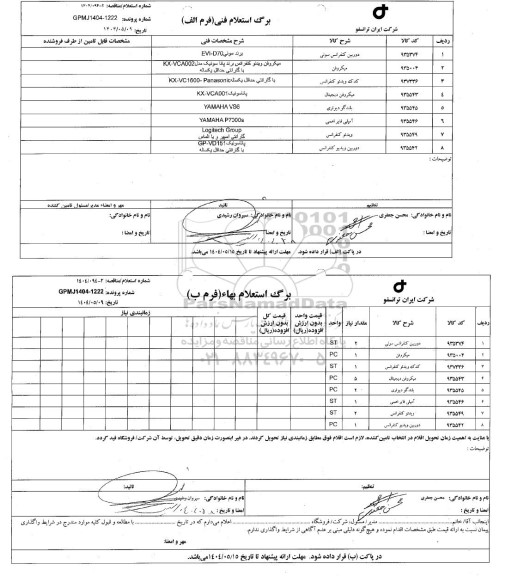 شماره استعلام/مناقصه: ۱۴۰۴/۰۹۴۰۲
شماره پرونده: GPMJ1404-1222
تاریخ: ۱۴۰۴/۰۵/۰۹
برگ استعلام فنی(فرم الف)
شرکت ایران ترانسفو
ردیف کد کالا شرح کالا مشخصات فنی مشخصات قابل تامین از طرف فروشنده
۱ ۹۳۵۳۷۴ دوربین کنفرانس سونی برند سونی EVI-D70
۲ ۹۳۵۰۰۴ میکروفن میکروفن ویدئو کنفرانس برند پانا سونیک مدل KX-VCA002 با گارانتی حداقل یکساله
۳ ۹۳۷۳۳۶ کدک ویدئو کنفرانس با گارانتی حداقل یکساله KX-VC1600- Panasonic
۴ ۹۳۵۵۴۳ میکروفن دیجیتال پاناسونیک KX-VCA001
۵ ۹۳۵۵۴۵ بلندگو دیواری YAMAHA VS6
۶ ۹۳۵۵۴۶ آمپلی فایر اهمی YAMAHA P7000s
۷ ۹۳۵۵۴۹ ویدئو کنفرانس Logitech Group گارانتی امپهر و یا الماس
۸ ۹۳۵۵۴۲ دوربین ویدیو کنفرانس پاناسونیک GP-VD151 با گارانتی حداقل یکساله
توضیحات:
تنظیم: تائید مهر و امضاء مدیر/مسئول تامین کننده
نام و نام خانوادگی: محسن جعفری نام و نام خانوادگی: سیروان رشیدی نام و نام خانوادگی:
تاریخ و امضا: تاریخ و امضا: تاریخ و امضا:
در پاکت (الف) قرار داده شود. مهلت ارائه پیشنهاد تا تاریخ ۱۴۰۴/۰۵/۱۵ می‌باشد.
شماره استعلام/مناقصه: ۱۴۰۴/۰۹۴۰۲
شماره پرونده: GPMJ1404-1222
تاریخ: ۱۴۰۴/۰۵/۰۹
برگ استعلام بهاء(فرم ب)
شرکت ایران ترانسفو
ParsNamadData
پایگاه اطلاع رسانی مناقصه و مزایده
۰۲۱-۸۸۳۴۹۶۷۰-۵
ردیف کد کالا شرح کالا مقدار نیاز واحد قیمت واحد بدون ارزش افزوده(ریال) قیمت کل بدون ارزش افزوده(ریال) زمانبندی نیاز
۱ ۹۳۵۳۷۴ دوربین کنفرانس سونی ۲ ST
۲ ۹۳۵۰۰۴ میکروفن ۱ PC
۳ ۹۳۷۳۳۶ کدک ویدئو کنفرانس ۱ ST
۴ ۹۳۵۵۴۳ میکروفن دیجیتال ۵ PC
۵ ۹۳۵۵۴۵ بلندگو دیواری ۲ PC
۶ ۹۳۵۵۴۶ آمپلی فایر اهمی ۱ ST
۷ ۹۳۵۵۴۹ ویدئو کنفرانس ۲ ST
۸ ۹۳۵۵۴۲ دوربین ویدیو کنفرانس ۱ PC
با عنایت به اهمیت زمان تحویل اقلام در انتخاب تامین کننده، لازم است اقلام فوق مطابق زمانبندی نیاز تحویل گردند. در غیر اینصورت زمان دقیق تحویل، توسط آن شرکت/ فروشگاه قید گردد.
توضیحات:
تنظیم: تائید:
نام و نام خانوادگی: محسن جعفری نام و نام خانوادگی: سیروان رشیدی
امضا و تاریخ: امضا و تاریخ:
اینجانب آقا/ خانم مدیر/ مسئول: شرکت/ فروشگاه اعلام می‌دارم که در تاریخ با مطالعه و قبول کلیه موارد مندرج در شرایط واگذاری
پیمان نسبت به ارائه قیمت طبق مشخصات اقدام نموده و هیچ‌گونه دلیلی مبنی بر عدم آگاهی از شرایط واگذاری ندارم.
مهر و امضا:
در پاکت (ب) قرار داده شود. مهلت ارائه پیشنهاد تا تاریخ ۱۴۰۴/۰۵/۱۵ می‌باشد.